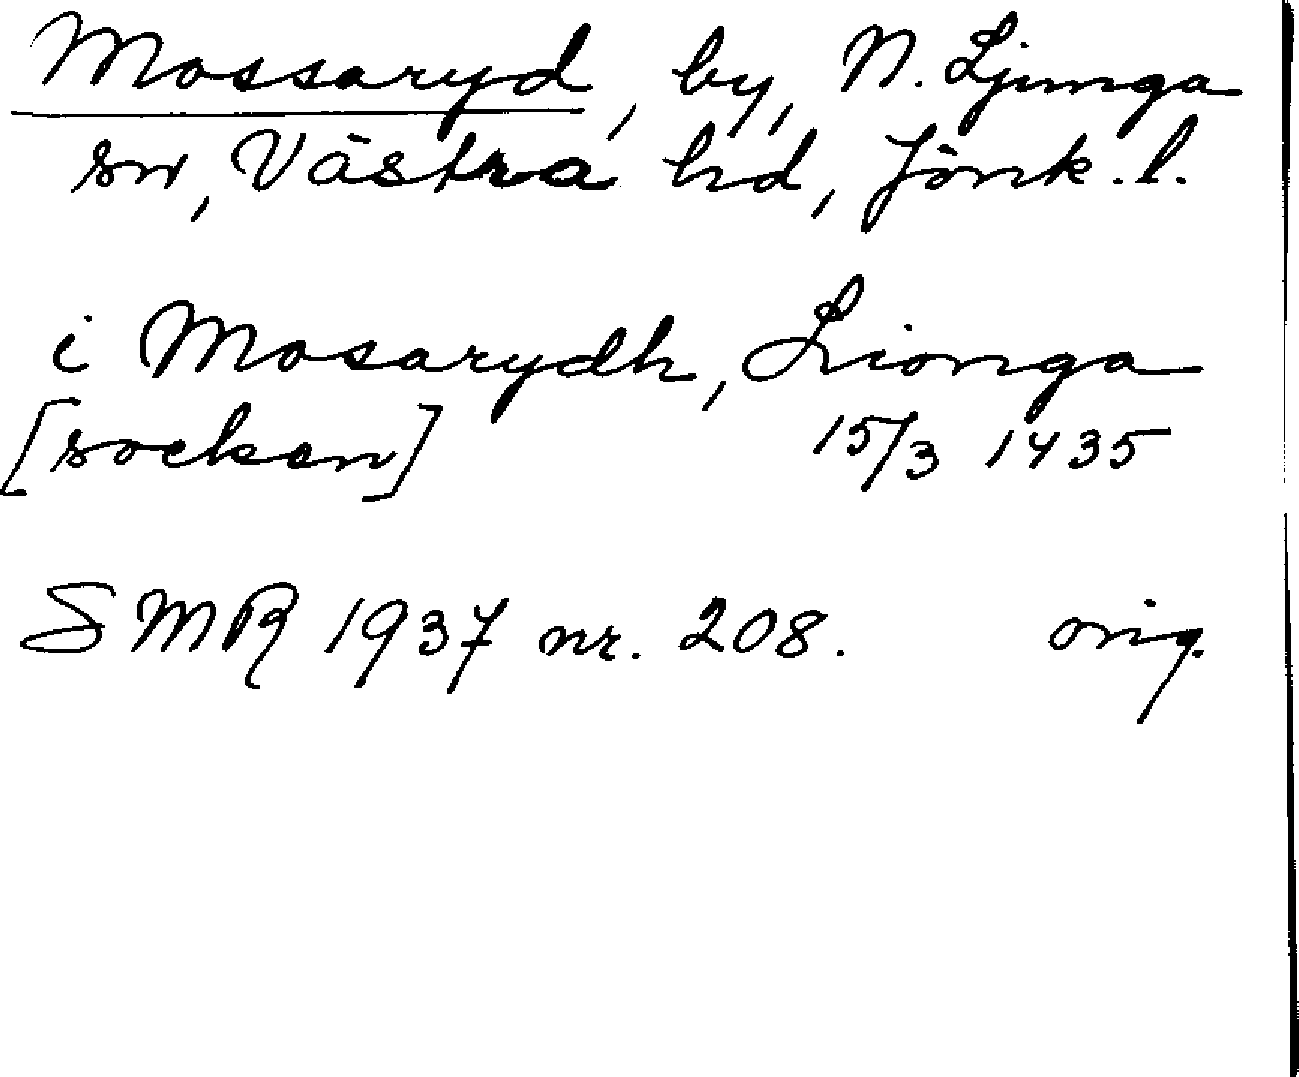 Mossaryd, by, N. Ljunga
sn, Västra hd, Jönk. l.
i Mosarydh, Lionga
[socken] 15/3 1435
SMR 1937 nr. 208. orig.